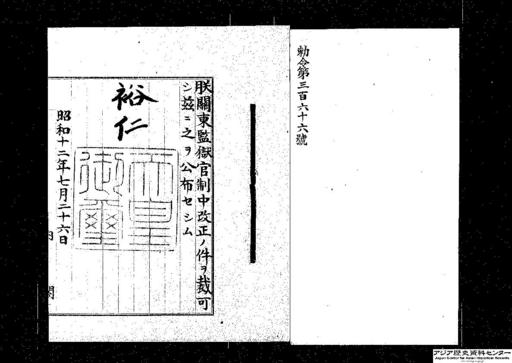 勅令第三百六十六號
朕關東監獄官制中改正ノ件ヲ裁可
シ茲ニ之ヲ公布セシム
裕仁
天皇御璽
昭和十二年七月二十六日
アジア歴史資料センター
Japan Center for Asian Historical Records